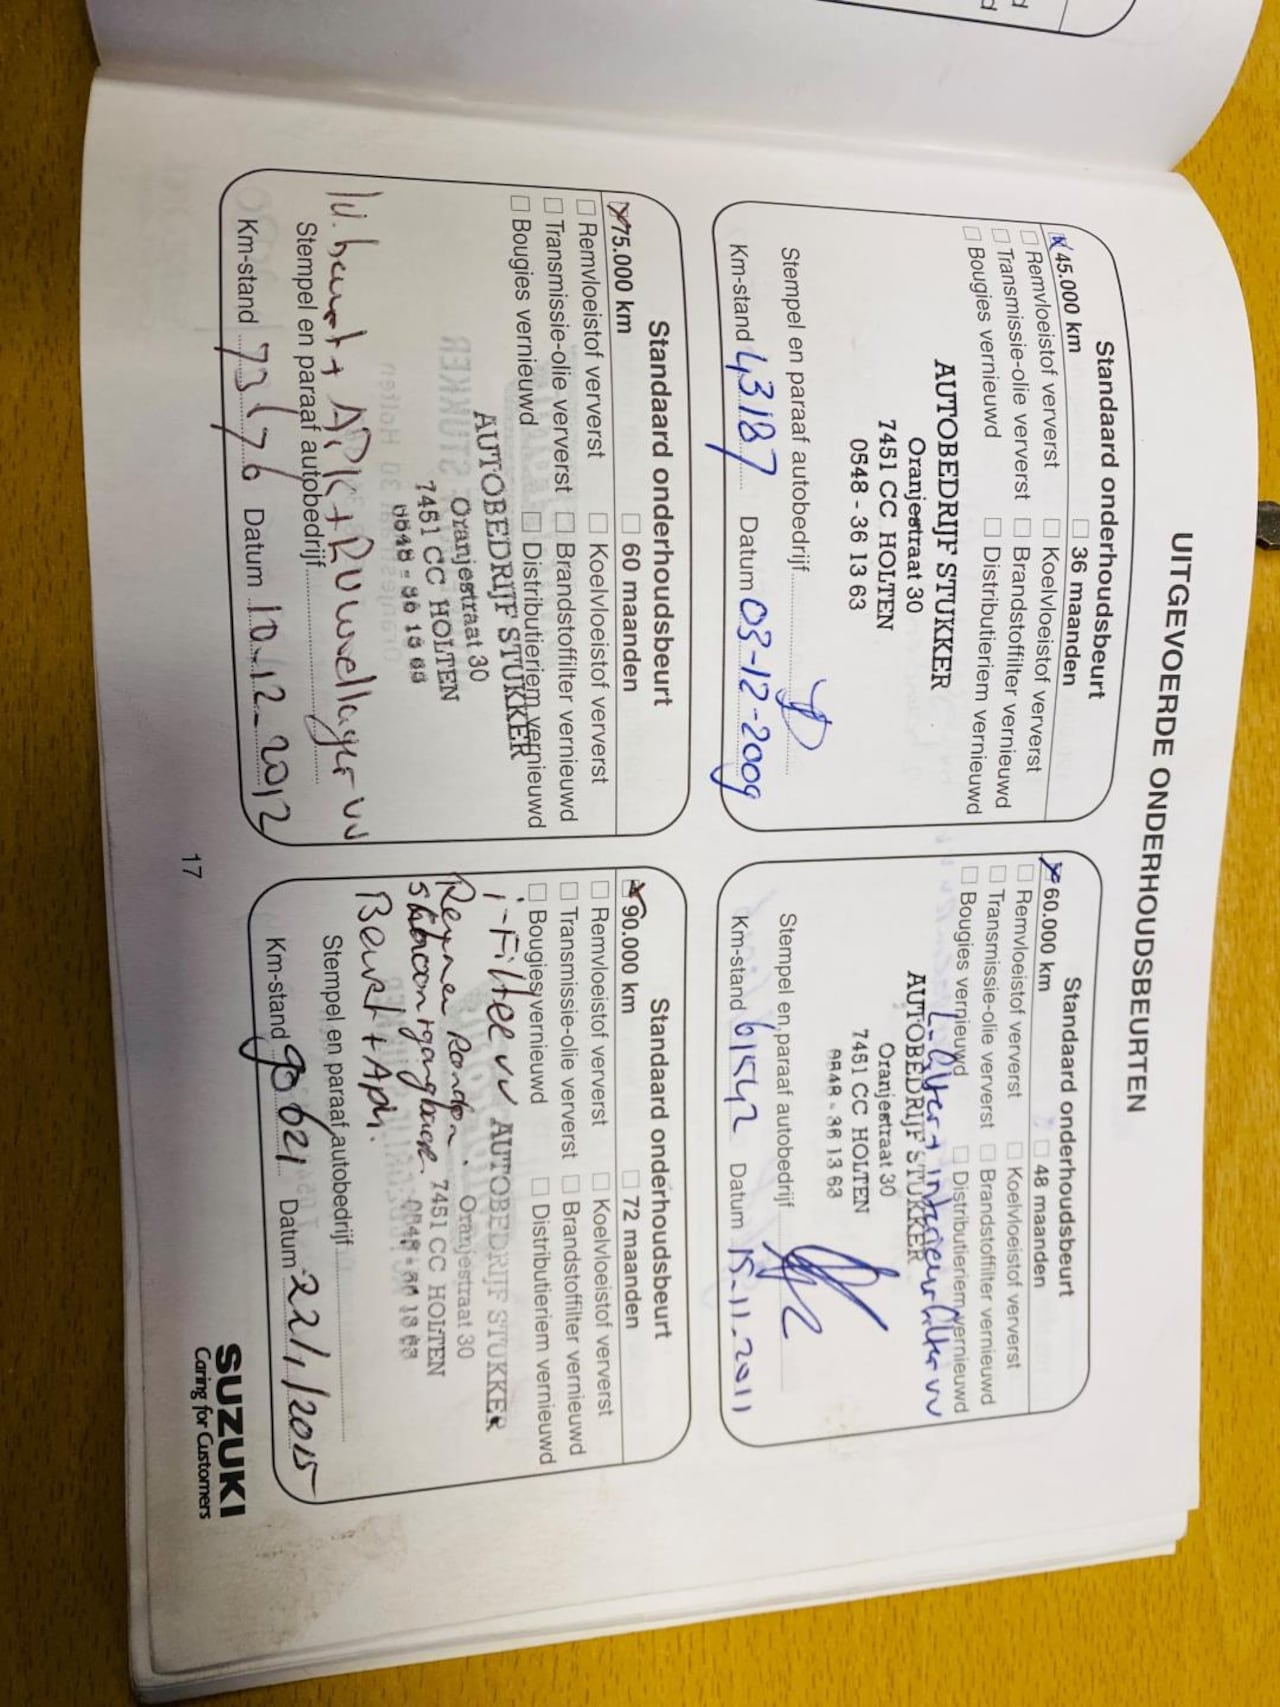 UITGEVOERDE ONDERHOUDSBEURTEN
Standaard onderhoudsbeurt
45.000 km □ 36 maanden
□ Remvloeistof ververst □ Koelvloeistof ververst
□ Transmissie-olie ververst □ Brandstoffilter vernieuwd
□ Bougies vernieuwd □ Distributieriem vernieuwd
AUTOBEDRIJF STUKKER
Oranjestraat 30
7451 CC HOLTEN
0548 - 36 13 63
Stempel en paraaf autobedrijf
Km-stand 43187 Datum 03-12-2009
Standaard onderhoudsbeurt
60.000 km □ 48 maanden
□ Remvloeistof ververst □ Koelvloeistof ververst
□ Transmissie-olie ververst □ Brandstoffilter vernieuwd
□ Bougies vernieuwd □ Distributieriem vernieuwd
L-filter + interieurfilter vv
AUTOBEDRIJF STUKKER
Oranjestraat 30
7451 CC HOLTEN
0548 - 36 13 63
Stempel en paraaf autobedrijf
Km-stand 61542 Datum 15-11-2011
Standaard onderhoudsbeurt
75.000 km □ 60 maanden
□ Remvloeistof ververst □ Koelvloeistof ververst
□ Transmissie-olie ververst □ Brandstoffilter vernieuwd
□ Bougies vernieuwd □ Distributieriem vernieuwd
AUTOBEDRIJF STUKKER
Oranjestraat 30
7451 CC HOLTEN
0548 - 36 13 63
beurt + APK + RV wiellager vv
Stempel en paraaf autobedrijf
Km-stand 73176 Datum 10-12-2012
Standaard onderhoudsbeurt
90.000 km □ 72 maanden
□ Remvloeistof ververst □ Koelvloeistof ververst
□ Transmissie-olie ververst □ Brandstoffilter vernieuwd
□ Bougies vernieuwd □ Distributieriem vernieuwd
i-Filter vv AUTOBEDRIJF STUKKER
Oranjestraat 30
7451 CC HOLTEN
0548 - 36 13 63
Beurt + Apk.
Stempel en paraaf autobedrijf
Km-stand 90621 Datum 22/1/2015
17
SUZUKI
Caring for Customers